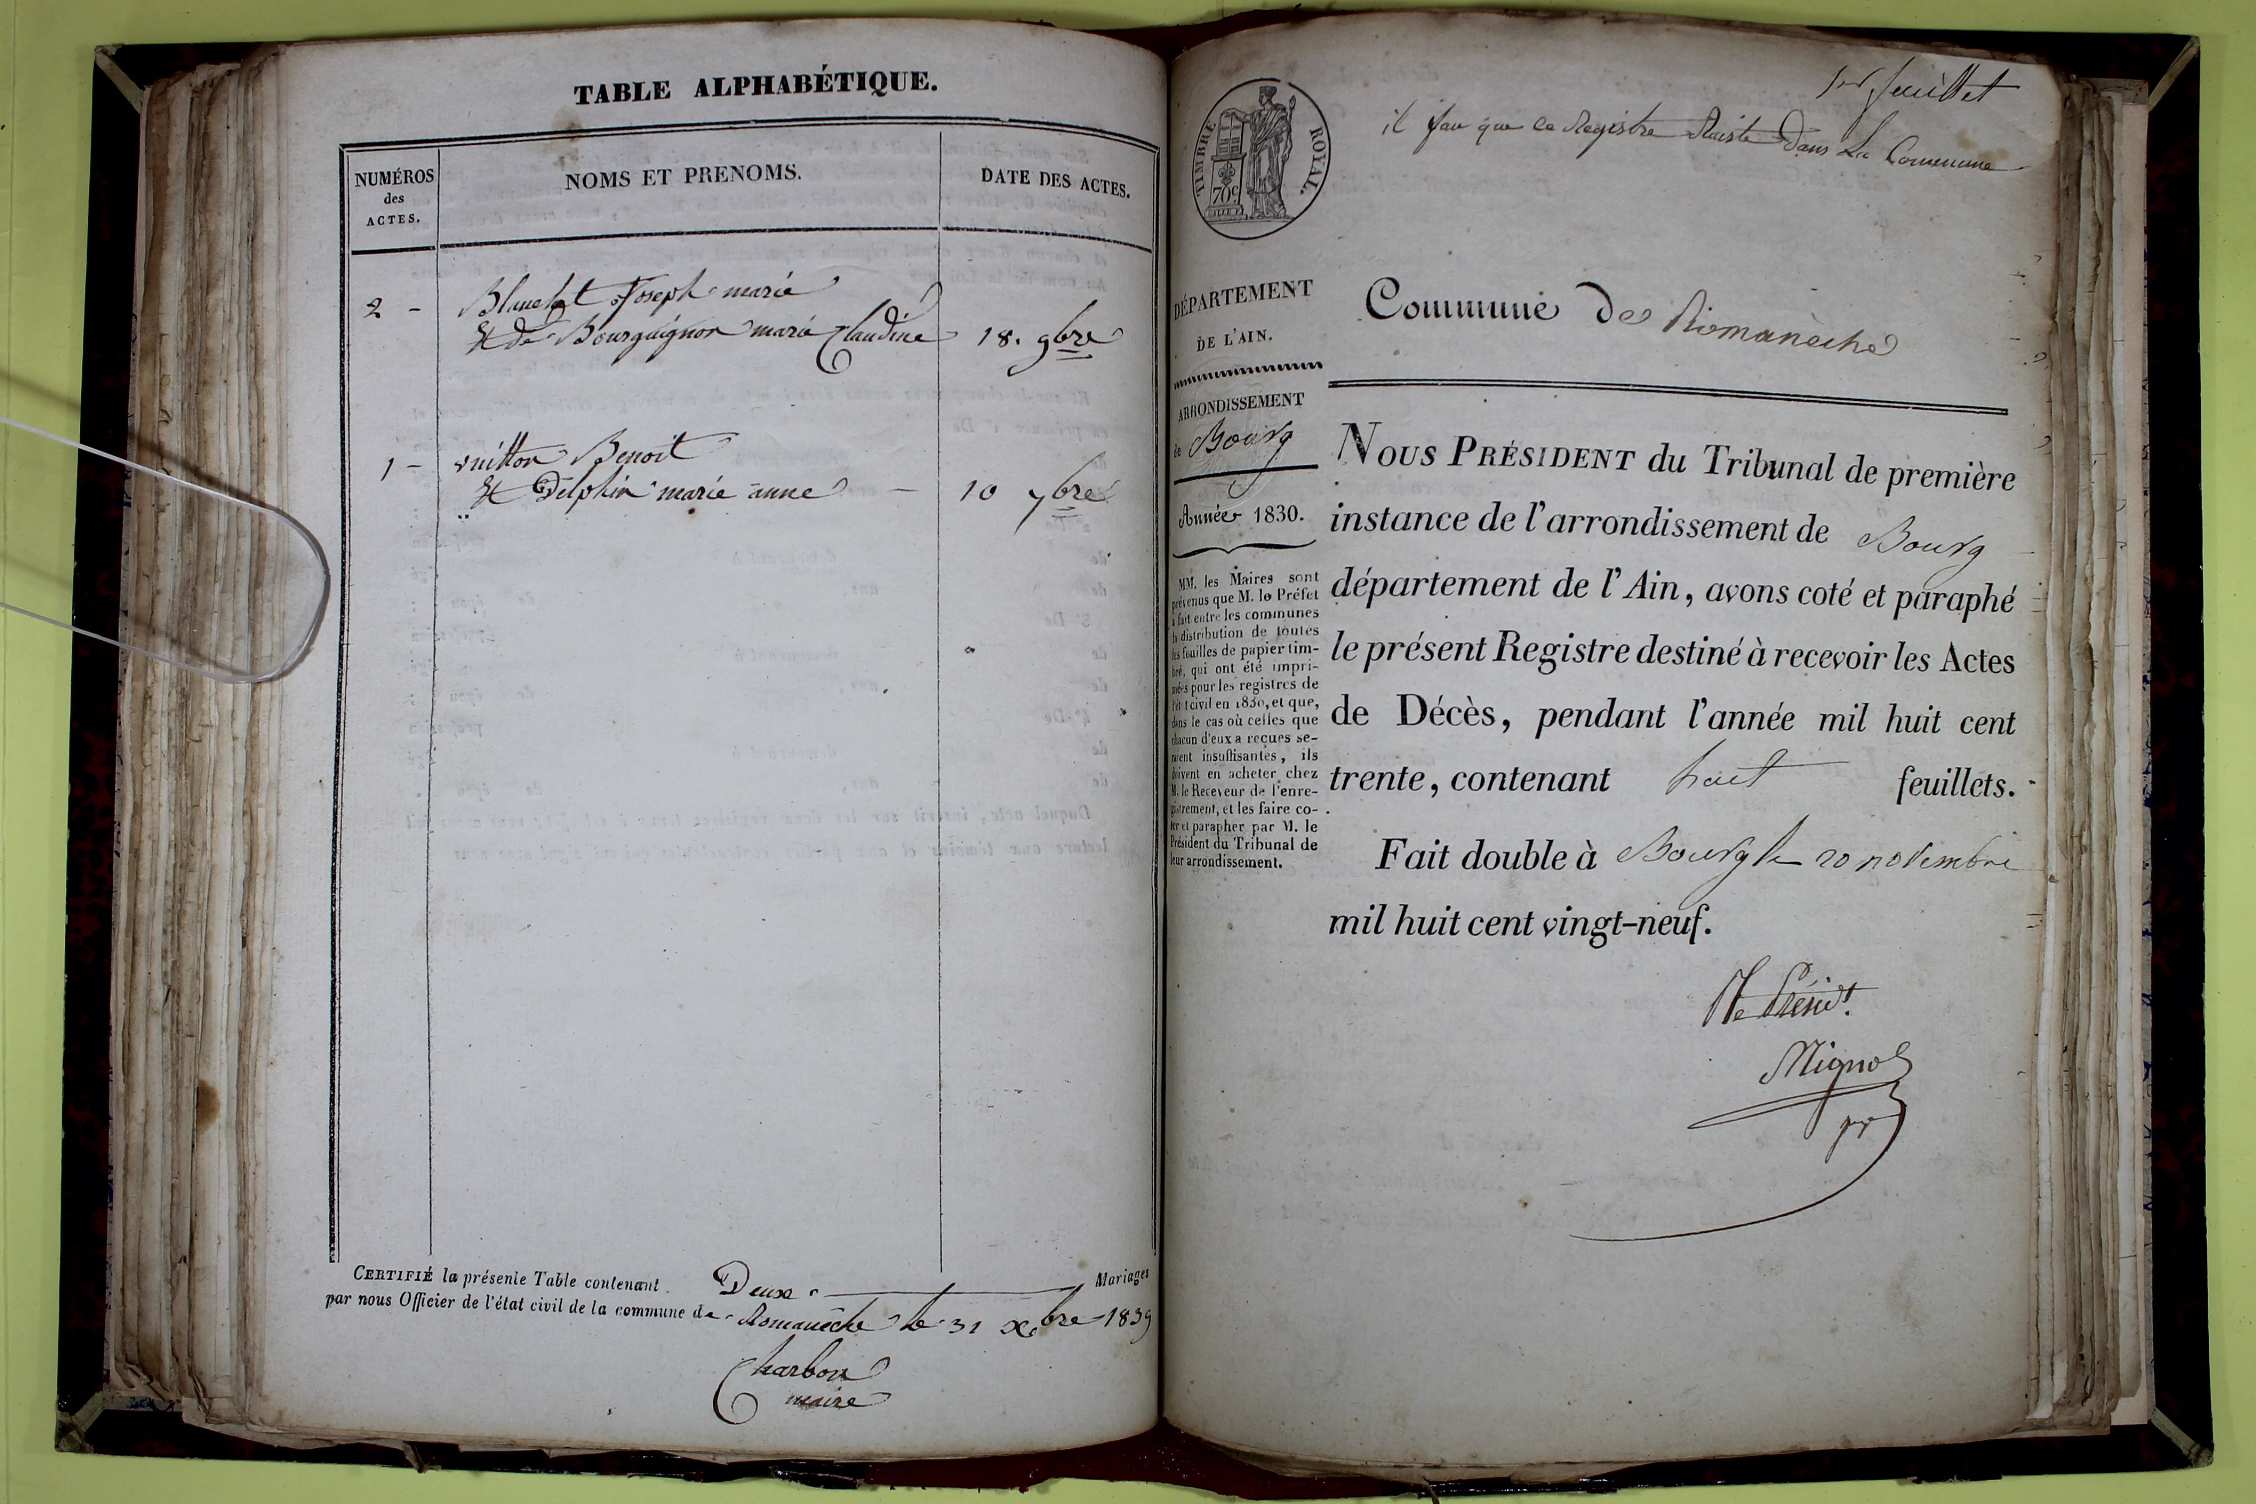 TABLE ALPHABÉTIQUE.
NUMÉROS
des
ACTES.
NOMS ET PRENOMS.
DATE DES ACTES.
2 - Blanchet Joseph marie
& de Bourguignon marie Claudine 18. 9bre
1 - vuitton Benoit
& Delphin marie anne - 10 7bre
CERTIFIÉ la présente Table contenant Deux Mariages
par nous Officier de l'état civil de la commune de Romanèche le 31 Xbre 1839
Charbon
maire
1er feuillet
il fau que ce Registre Raiste dans La Commune
TIMBRE ROYAL.
70c
DÉPARTEMENT
DE L'AIN.
ARRONDISSEMENT
de Bourg
Année 1830.
MM. les Maires sont
prévenus que M. le Préfet
a fait entre les communes
la distribution de toutes
les feuilles de papier tim-
bré, qui ont été impri-
mées pour les registres de
l'état civil en 1830, et que,
dans le cas où celles que
chacun d'eux a reçues se-
raient insuffisantes, ils
doivent en acheter chez
M. le Receveur de l'enre-
gistrement, et les faire co-
ter et parapher par M. le
Président du Tribunal de
leur arrondissement.
Commune de Romanèche
NOUS PRÉSIDENT du Tribunal de première
instance de l'arrondissement de Bourg
département de l'Ain, avons coté et paraphé
le présent Registre destiné à recevoir les Actes
de Décès, pendant l'année mil huit cent
trente, contenant huit feuillets.
Fait double à Bourg le 20 novembre
mil huit cent vingt-neuf.
Le Présidt.
Mignot
pr